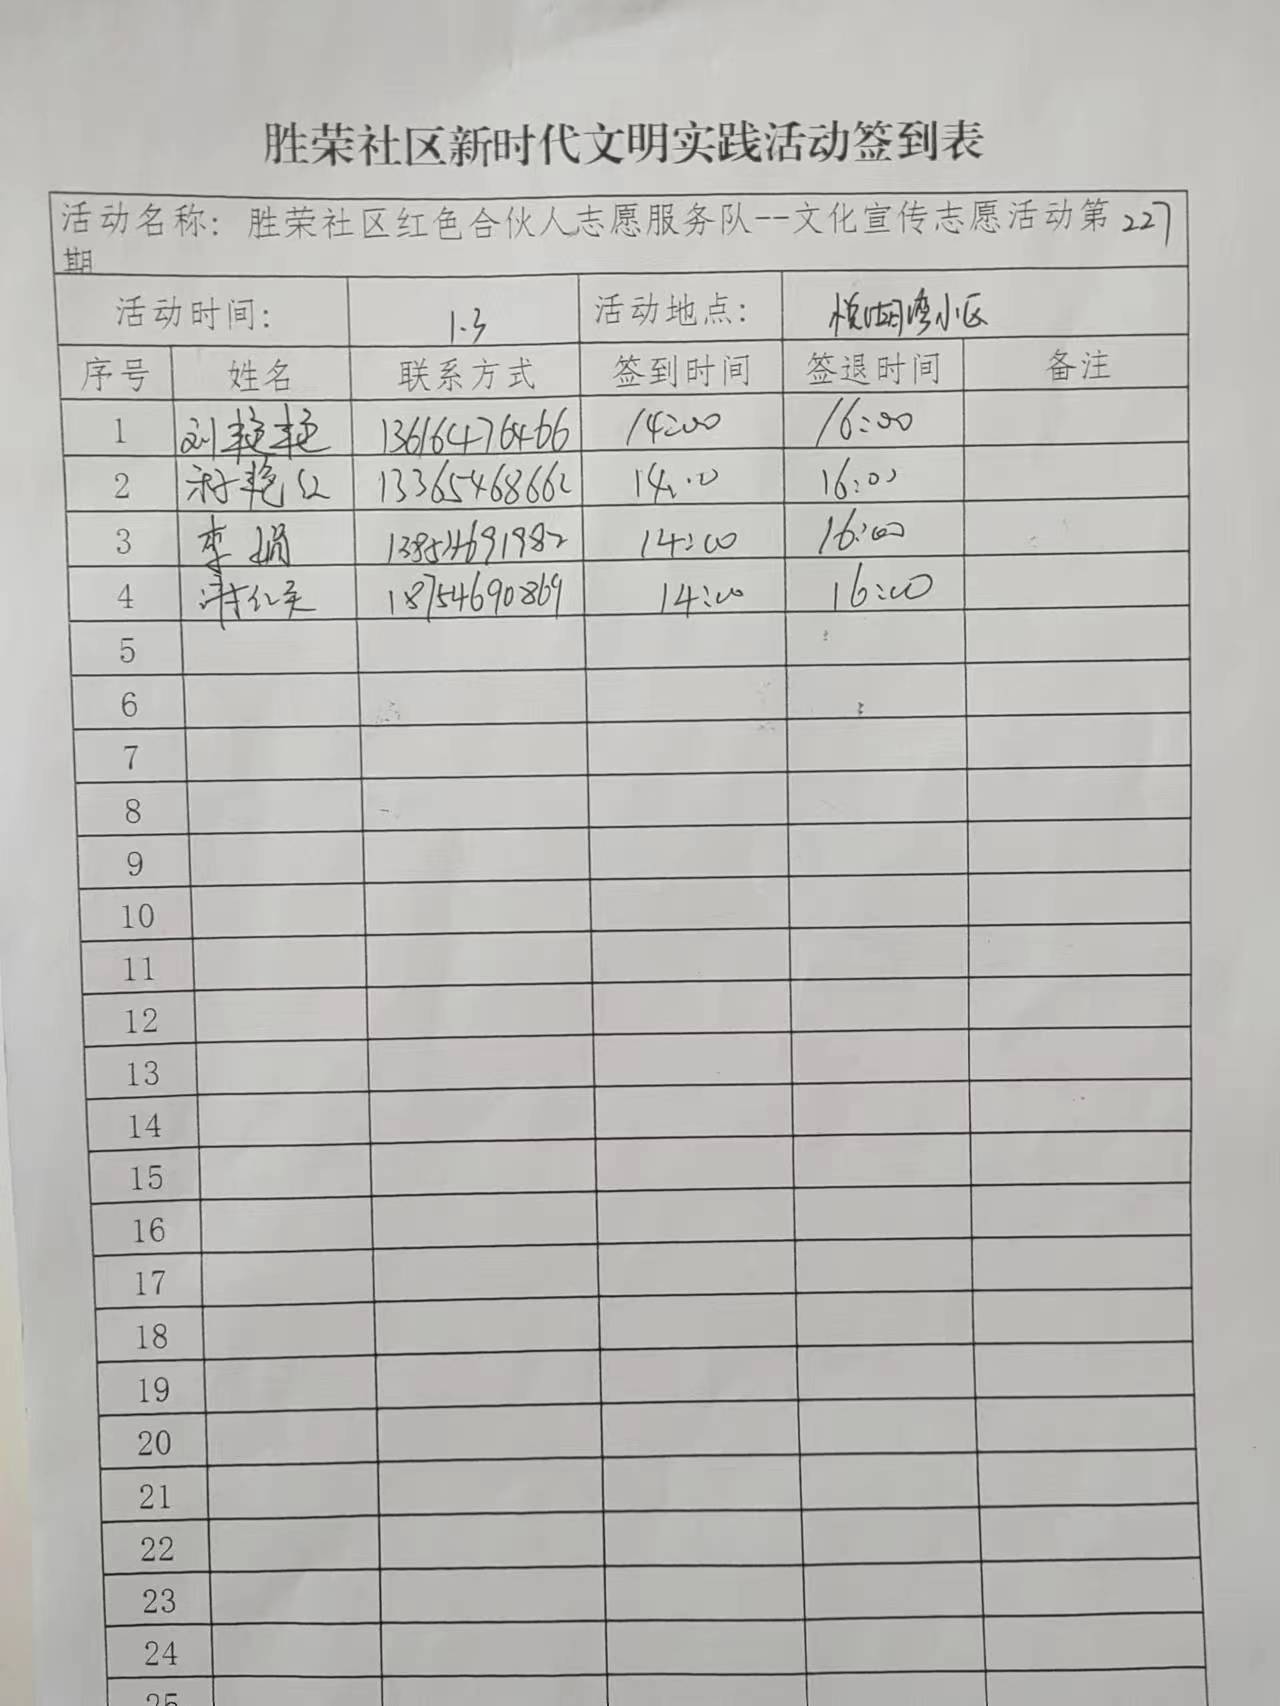 胜荣社区新时代文明实践活动签到表
活动名称：胜荣社区红色合伙人志愿服务队--文化宣传志愿活动第227
期
活动时间： 1.3 活动地点： 悦湖湾小区
序号 姓名 联系方式 签到时间 签退时间 备注
1 刘艳艳 13616476466 14:00 16:00
2 艳红 13365468662 14:00 16:00
3 李娟 13854691982 14:00 16:00
4 18754690869 14:00 16:00
5
6
7
8
9
10
11
12
13
14
15
16
17
18
19
20
21
22
23
24
25